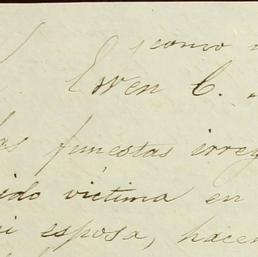 como
Ewen C.
las funestas irreg
ido victima en
i esposa, hacen